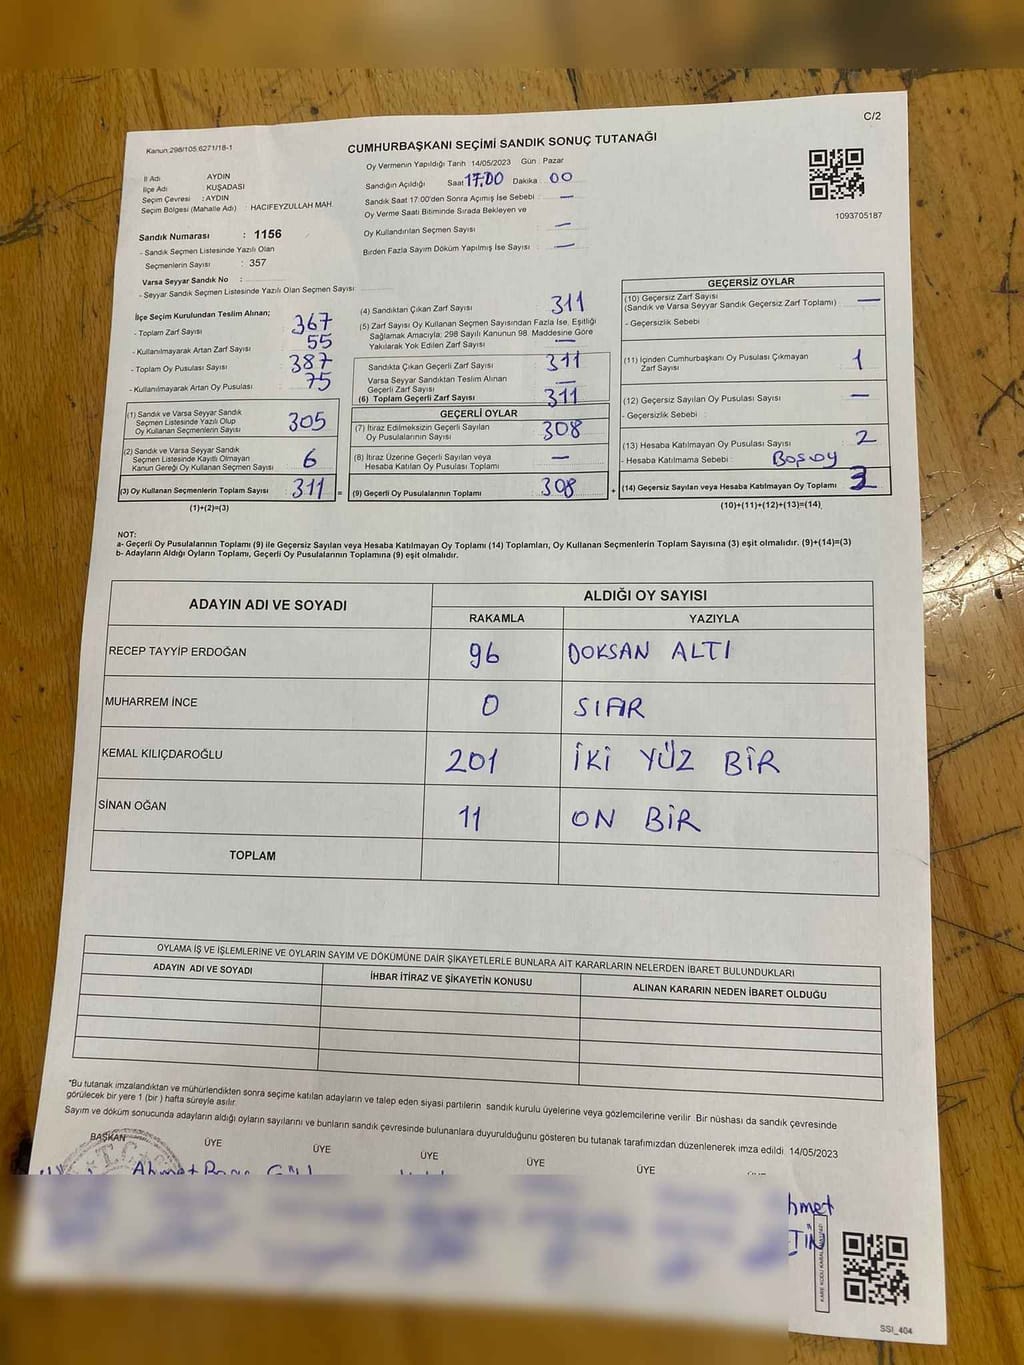 C/2
Kanun:298/105.6271/18-1
CUMHURBAŞKANI SEÇİMİ SANDIK SONUÇ TUTANAĞI
Oy Vermenin Yapıldığı Tarih : 14/05/2023 Gün : Pazar
İl Adı AYDIN
İlçe Adı KUŞADASI
Seçim Çevresi : AYDIN
Seçim Bölgesi (Mahalle Adı) : HACIFEYZULLAH MAH.
Sandığın Açıldığı Saat 17:00 Dakika : 00
Sandık Saat 17:00'den Sonra Açımış İse Sebebi : —
Oy Verme Saati Bitiminde Sırada Bekleyen ve
Oy Kullandırılan Seçmen Sayısı : —
Birden Fazla Sayım Döküm Yapılmış İse Sayısı : —
1093705187
Sandık Numarası : 1156
- Sandık Seçmen Listesinde Yazılı Olan
Seçmenlerin Sayısı : 357
Varsa Seyyar Sandık No :
- Seyyar Sandık Seçmen Listesinde Yazılı Olan Seçmen Sayısı :
İlçe Seçim Kurulundan Teslim Alınan;
- Toplam Zarf Sayısı 367
- Kullanılmayarak Artan Zarf Sayısı 55
- Toplam Oy Pusulası Sayısı 387
- Kullanılmayarak Artan Oy Pusulası 75
(1) Sandık ve Varsa Seyyar Sandık
Seçmen Listesinde Yazılı Olup
Oy Kullanan Seçmenlerin Sayısı 305
(2) Sandık ve Varsa Seyyar Sandık
Seçmen Listesinde Kayıtlı Olmayan
Kanun Gereği Oy Kullanan Seçmen Sayısı 6
(3) Oy Kullanan Seçmenlerin Toplam Sayısı 311 =
(1)+(2)=(3)
(4) Sandıktan Çıkan Zarf Sayısı 311
(5) Zarf Sayısı Oy Kullanan Seçmen Sayısından Fazla İse, Eşitliği
Sağlamak Amacıyla; 298 Sayılı Kanunun 98. Maddesine Göre
Yakılarak Yok Edilen Zarf Sayısı —
Sandıkta Çıkan Geçerli Zarf Sayısı 311
Varsa Seyyar Sandıktan Teslim Alınan
Geçerli Zarf Sayısı —
(6) Toplam Geçerli Zarf Sayısı 311
GEÇERLİ OYLAR
(7) İtiraz Edilmeksizin Geçerli Sayılan
Oy Pusulalarının Sayısı 308
(8) İtiraz Üzerine Geçerli Sayılan veya
Hesaba Katılan Oy Pusulası Toplamı —
(9) Geçerli Oy Pusulalarının Toplamı 308 +
GEÇERSİZ OYLAR
(10) Geçersiz Zarf Sayısı
(Sandık ve Varsa Seyyar Sandık Geçersiz Zarf Toplamı) —
- Geçersizlik Sebebi :
(11) İçinden Cumhurbaşkanı Oy Pusulası Çıkmayan
Zarf Sayısı 1
(12) Geçersiz Sayılan Oy Pusulası Sayısı —
- Geçersizlik Sebebi :
(13) Hesaba Katılmayan Oy Pusulası Sayısı 2
- Hesaba Katılmama Sebebi : Boş oy
(14) Geçersiz Sayılan veya Hesaba Katılmayan Oy Toplamı 3
(10)+(11)+(12)+(13)=(14)
NOT:
a- Geçerli Oy Pusulalarının Toplamı (9) ile Geçersiz Sayılan veya Hesaba Katılmayan Oy Toplamı (14) Toplamları, Oy Kullanan Seçmenlerin Toplam Sayısına (3) eşit olmalıdır. (9)+(14)=(3)
b- Adayların Aldığı Oyların Toplamı, Geçerli Oy Pusulalarının Toplamına (9) eşit olmalıdır.
ADAYIN ADI VE SOYADI ALDIĞI OY SAYISI
RAKAMLA YAZIYLA
RECEP TAYYİP ERDOĞAN 96 DOKSAN ALTI
MUHARREM İNCE 0 SIFIR
KEMAL KILIÇDAROĞLU 201 İKİ YÜZ BİR
SİNAN OĞAN 11 ON BİR
TOPLAM
OYLAMA İŞ VE İŞLEMLERİNE VE OYLARIN SAYIM VE DÖKÜMÜNE DAİR ŞİKAYETLERLE BUNLARA AİT KARARLARIN NELERDEN İBARET BULUNDUKLARI
ADAYIN ADI VE SOYADI İHBAR İTİRAZ VE ŞİKAYETİN KONUSU ALINAN KARARIN NEDEN İBARET OLDUĞU
*Bu tutanak imzalandıktan ve mühürlendikten sonra seçime katılan adayların ve talep eden siyasi partilerin sandık kurulu üyelerine veya gözlemcilerine verilir. Bir nüshası da sandık çevresinde
görülecek bir yere 1 (bir ) hafta süreyle asılır.
Sayım ve döküm sonucunda adayların aldığı oyların sayılarını ve bunların sandık çevresinde bulunanlara duyurulduğunu gösteren bu tutanak tarafımızdan düzenlenerek imza edildi. 14/05/2023
BAŞKAN ÜYE ÜYE ÜYE ÜYE ÜYE
T.C.
Ahmet
hmet
TİN
SSI_404